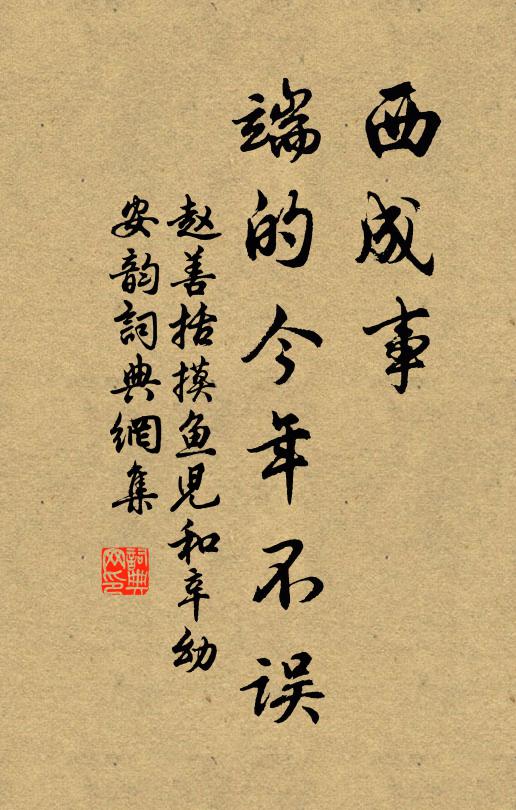 西成事
端的今年不误
赵善括摸鱼児和辛幼
安韵詞典網集
詞典网印